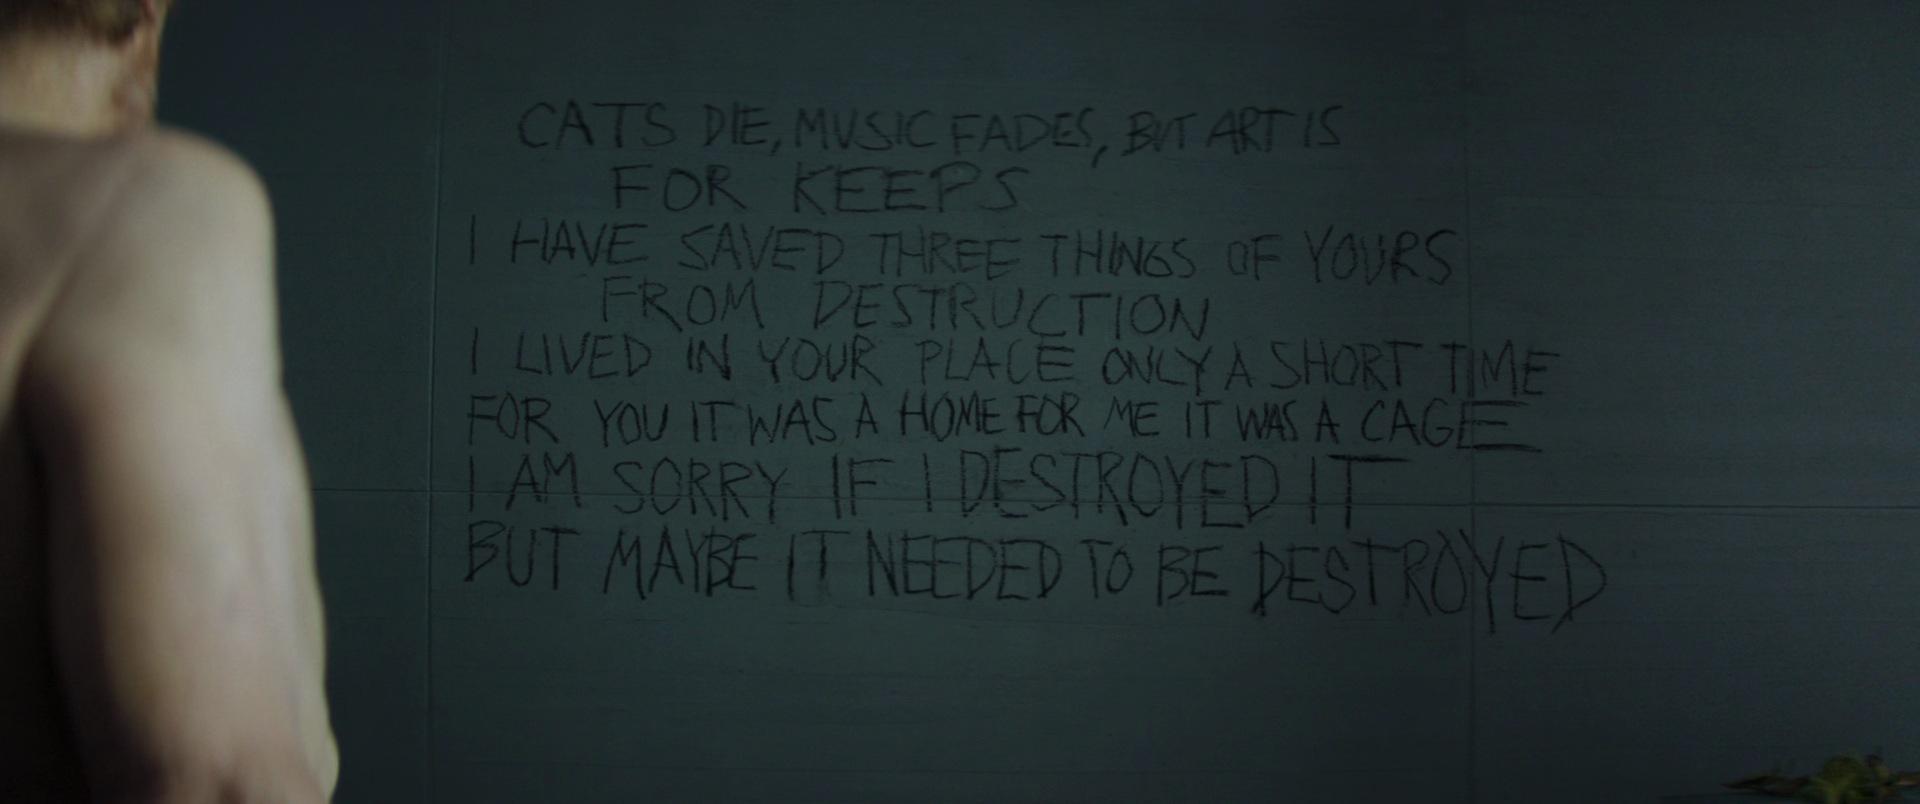 CATS DIE, MUSIC FADES, BUT ART IS
FOR KEEPS
I HAVE SAVED THREE THINGS OF YOURS
FROM DESTRUCTION
I LIVED IN YOUR PLACE ONLY A SHORT TIME
FOR YOU IT WAS A HOME FOR ME IT WAS A CAGE
I AM SORRY IF I DESTROYED IT
BUT MAYBE IT NEEDED TO BE DESTROYED